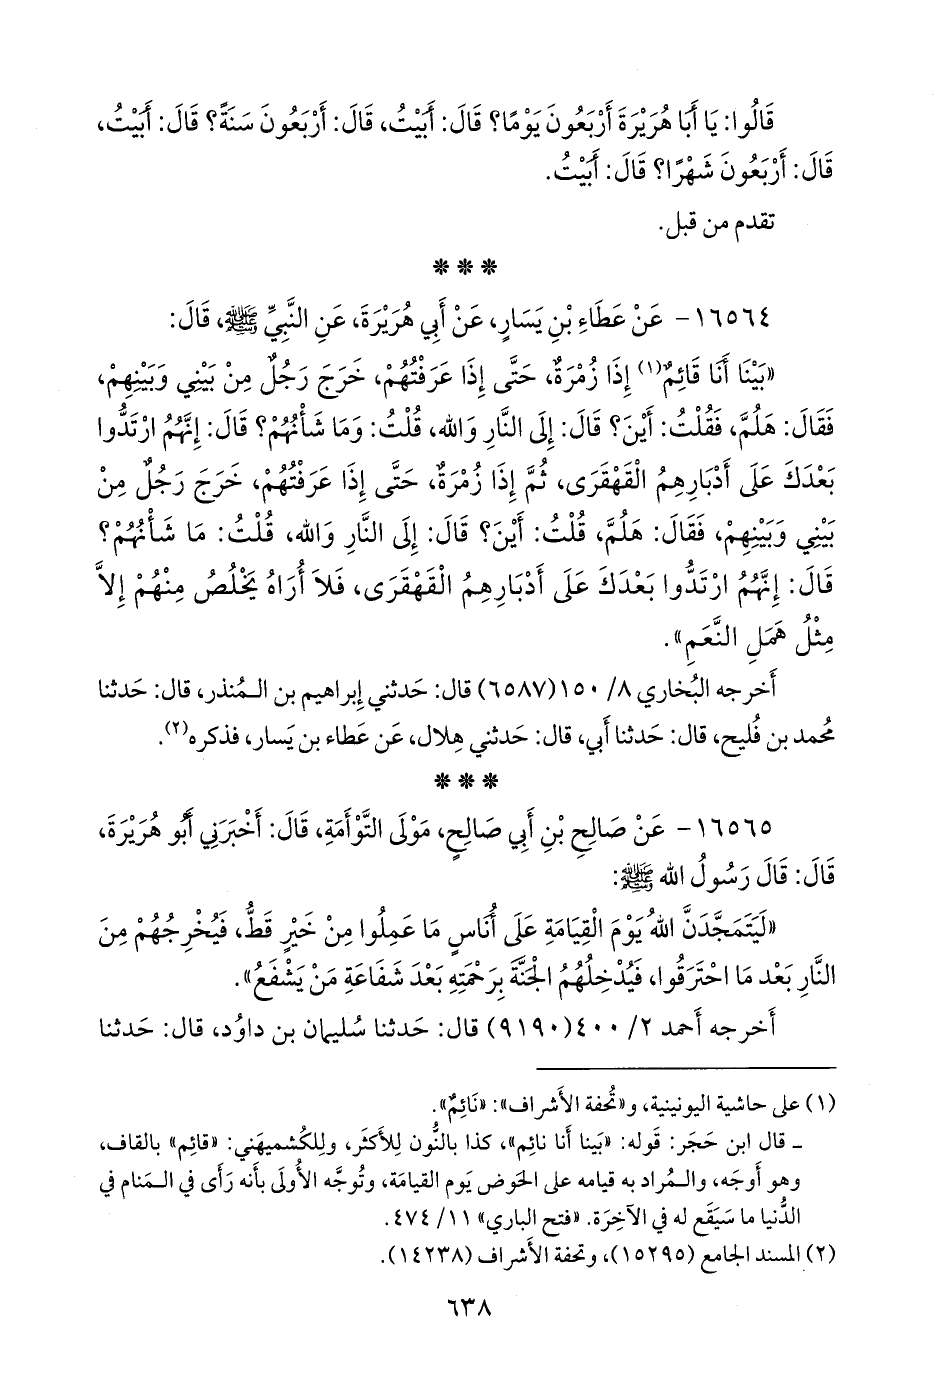 قَالُوا: يَا أَبَا هُرَيْرَةَ أَرْبَعُونَ يَوْمًا؟ قَالَ: أَبَيْتُ، قَالَ: أَرْبَعُونَ سَنَةً؟ قَالَ: أَبَيْتُ،
قَالَ: أَرْبَعُونَ شَهْرًا؟ قَالَ: أَبَيْتُ.
تقدم من قبل.
* * *
١٦٥٦٤- عَنْ عَطَاءِ بْنِ يَسَارٍ، عَنْ أَبِي هُرَيْرَةَ، عَنِ النَّبِيِّ ﷺ، قَالَ:
«بَيْنَا أَنَا قَائِمٌ(١) إِذَا زُمْرَةٌ، حَتَّى إِذَا عَرَفْتُهُمْ، خَرَجَ رَجُلٌ مِنْ بَيْنِي وَبَيْنِهِمْ،
فَقَالَ: هَلُمَّ، فَقُلْتُ: أَيْنَ؟ قَالَ: إِلَى النَّارِ وَالله، قُلْتُ: وَمَا شَأْنُهُمْ؟ قَالَ: إِنَّهُمُ ارْتَدُّوا
بَعْدَكَ عَلَى أَدْبَارِهِمُ الْقَهْقَرَى، ثُمَّ إِذَا زُمْرَةٌ، حَتَّى إِذَا عَرَفْتُهُمْ، خَرَجَ رَجُلٌ مِنْ
بَيْنِي وَبَيْنِهِمْ، فَقَالَ: هَلُمَّ، قُلْتُ: أَيْنَ؟ قَالَ: إِلَى النَّارِ وَالله، قُلْتُ: مَا شَأْنُهُمْ؟
قَالَ: إِنَّهُمُ ارْتَدُّوا بَعْدَكَ عَلَى أَدْبَارِهِمُ الْقَهْقَرَى، فَلاَ أُرَاهُ يَخْلُصُ مِنْهُمْ إِلاَّ
مِثْلُ هَمَلِ النَّعَمِ».
أَخرجه البُخاري ٨/ ١٥٠(٦٥٨٧) قال: حَدثني إِبراهيم بن الـمُنذر، قال: حَدثنا
مُحمد بن فُليح، قال: حَدثنا أَبي، قال: حَدثني هِلال، عَن عَطاء بن يَسار، فذكره(٢).
* * *
١٦٥٦٥- عَنْ صَالِحِ بْنِ أَبِي صَالِحٍ، مَوْلَى التَّوْأَمَةِ، قَالَ: أَخْبَرَنِي أَبُو هُرَيْرَةَ،
قَالَ: قَالَ رَسُولُ الله ﷺ:
«لَيَتَمَجَّدَنَّ اللهُ يَوْمَ الْقِيَامَةِ عَلَى أُنَاسٍ مَا عَمِلُوا مِنْ خَيْرٍ قَطُّ، فَيُخْرِجُهُمْ مِنَ
النَّارِ بَعْد مَا احْتَرَقُوا، فَيُدْخِلُهُمُ الجَنَّةَ بِرَحْمَتِهِ بَعْدَ شَفَاعَةِ مَنْ يَشْفَعُ».
أَخرجه أَحمد ٢/ ٤٠٠(٩١٩٠) قال: حَدثنا سُليمان بن داوُد، قال: حَدثنا
(١) على حاشية اليونينية، و«تُحفة الأَشراف»: «نَائِمٌ».
ـ قال ابن حَجَر: قَوله: «بَينا أَنا نائِم»، كذا بالنُّون لِلأَكثَر، ولِلكُشميهَني: «قائِم» بالقاف،
وهو أَوجَه، والـمُراد به قيامه على الحَوض يَوم القيامَة، وتُوجَّه الأُولَى بأَنه رَأَى في الـمَنام في
الدُّنيا ما سَيَقَع له في الآخِرَة. «فتح الباري» ١١/ ٤٧٤.
(٢) المسند الجامع (١٥٢٩٥)، وتحفة الأَشراف (١٤٢٣٨).
٦٣٨